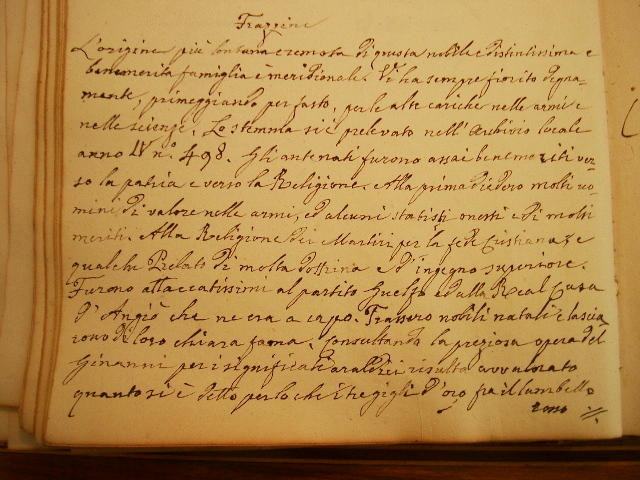 Frazzine
L'origine più lontana e remota di questa nobile e distintissima e
benemerita famiglia è meridionale. Vi ha sempre fiorito degna=
mente, primeggiando per fasto, per le alte cariche nelle armi e
nelle scienze. Lo stemma si è prelevato nell'Archivio locale
anno LV n.° 498. Gli antenati furono assai benemeriti ver=
so la patria e verso la Religione. Alla prima diedero molti uo=
mini di valore nelle armi, ed alcuni statisti onesti e di molti
meriti. Alla Religione dei Martiri per la fede Cristiana, e
qualche Prelato di molta dottrina e d'ingegno superiore.
Furono attaccatissimi al partito Guelfo ed alla Real Casa
d'Angiò che ne era a capo. Trassero nobili natali e lascia
rono di loro chiara fama. Consultando la preziosa opera del
Ginanni per i significati araldici risulta avvalorato
quanto si è detto perlochè i tre gigli d'oro fra il lambello